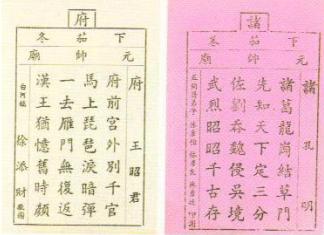 府
下茄冬
元帥廟
府 王昭君
府前宮外別千官
馬上琵琶淚暗彈
一去雁門無復返
漢王猶憶舊時顏
白河鎮 徐添財 敬獻
諸
下茄苳
元帥廟
諸 孔明
諸葛龍崗結草門
先知天下定三分
佐劉吞魏侵吳境
武烈昭昭千古存